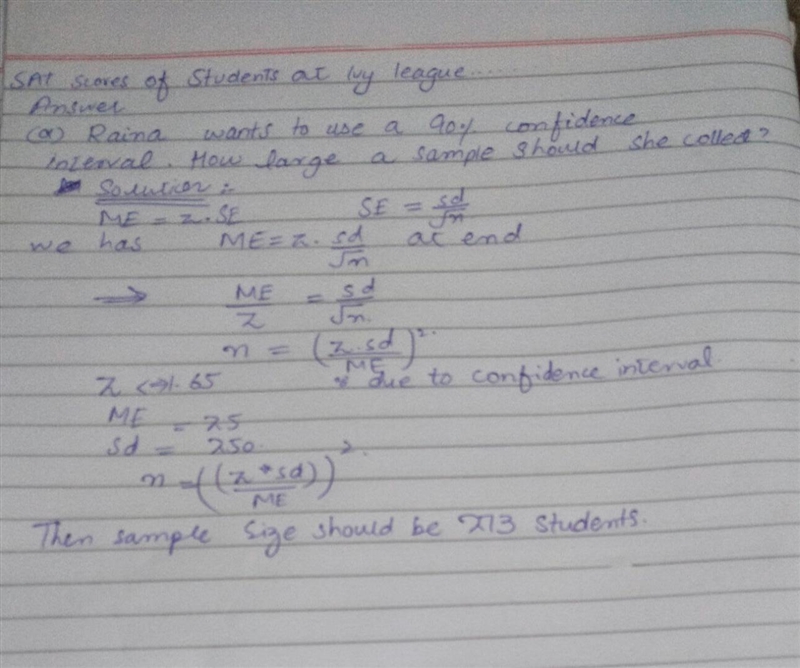 SAT scores of Students at Ivy league....
Answer
(a) Raina wants to use a 90% confidence
interval. How large a sample should she collect?
Solution:-
ME = z.SE SE = sd/√n
we has ME = z. sd/√n at end
⟹ ME/Z = sd/√n.
n = (z.sd/ME)².
Z <->1.65 due to confidence interval.
ME = 25
Sd = 250.
n = ((z*sd)/ME)².
Then sample size should be 273 students.